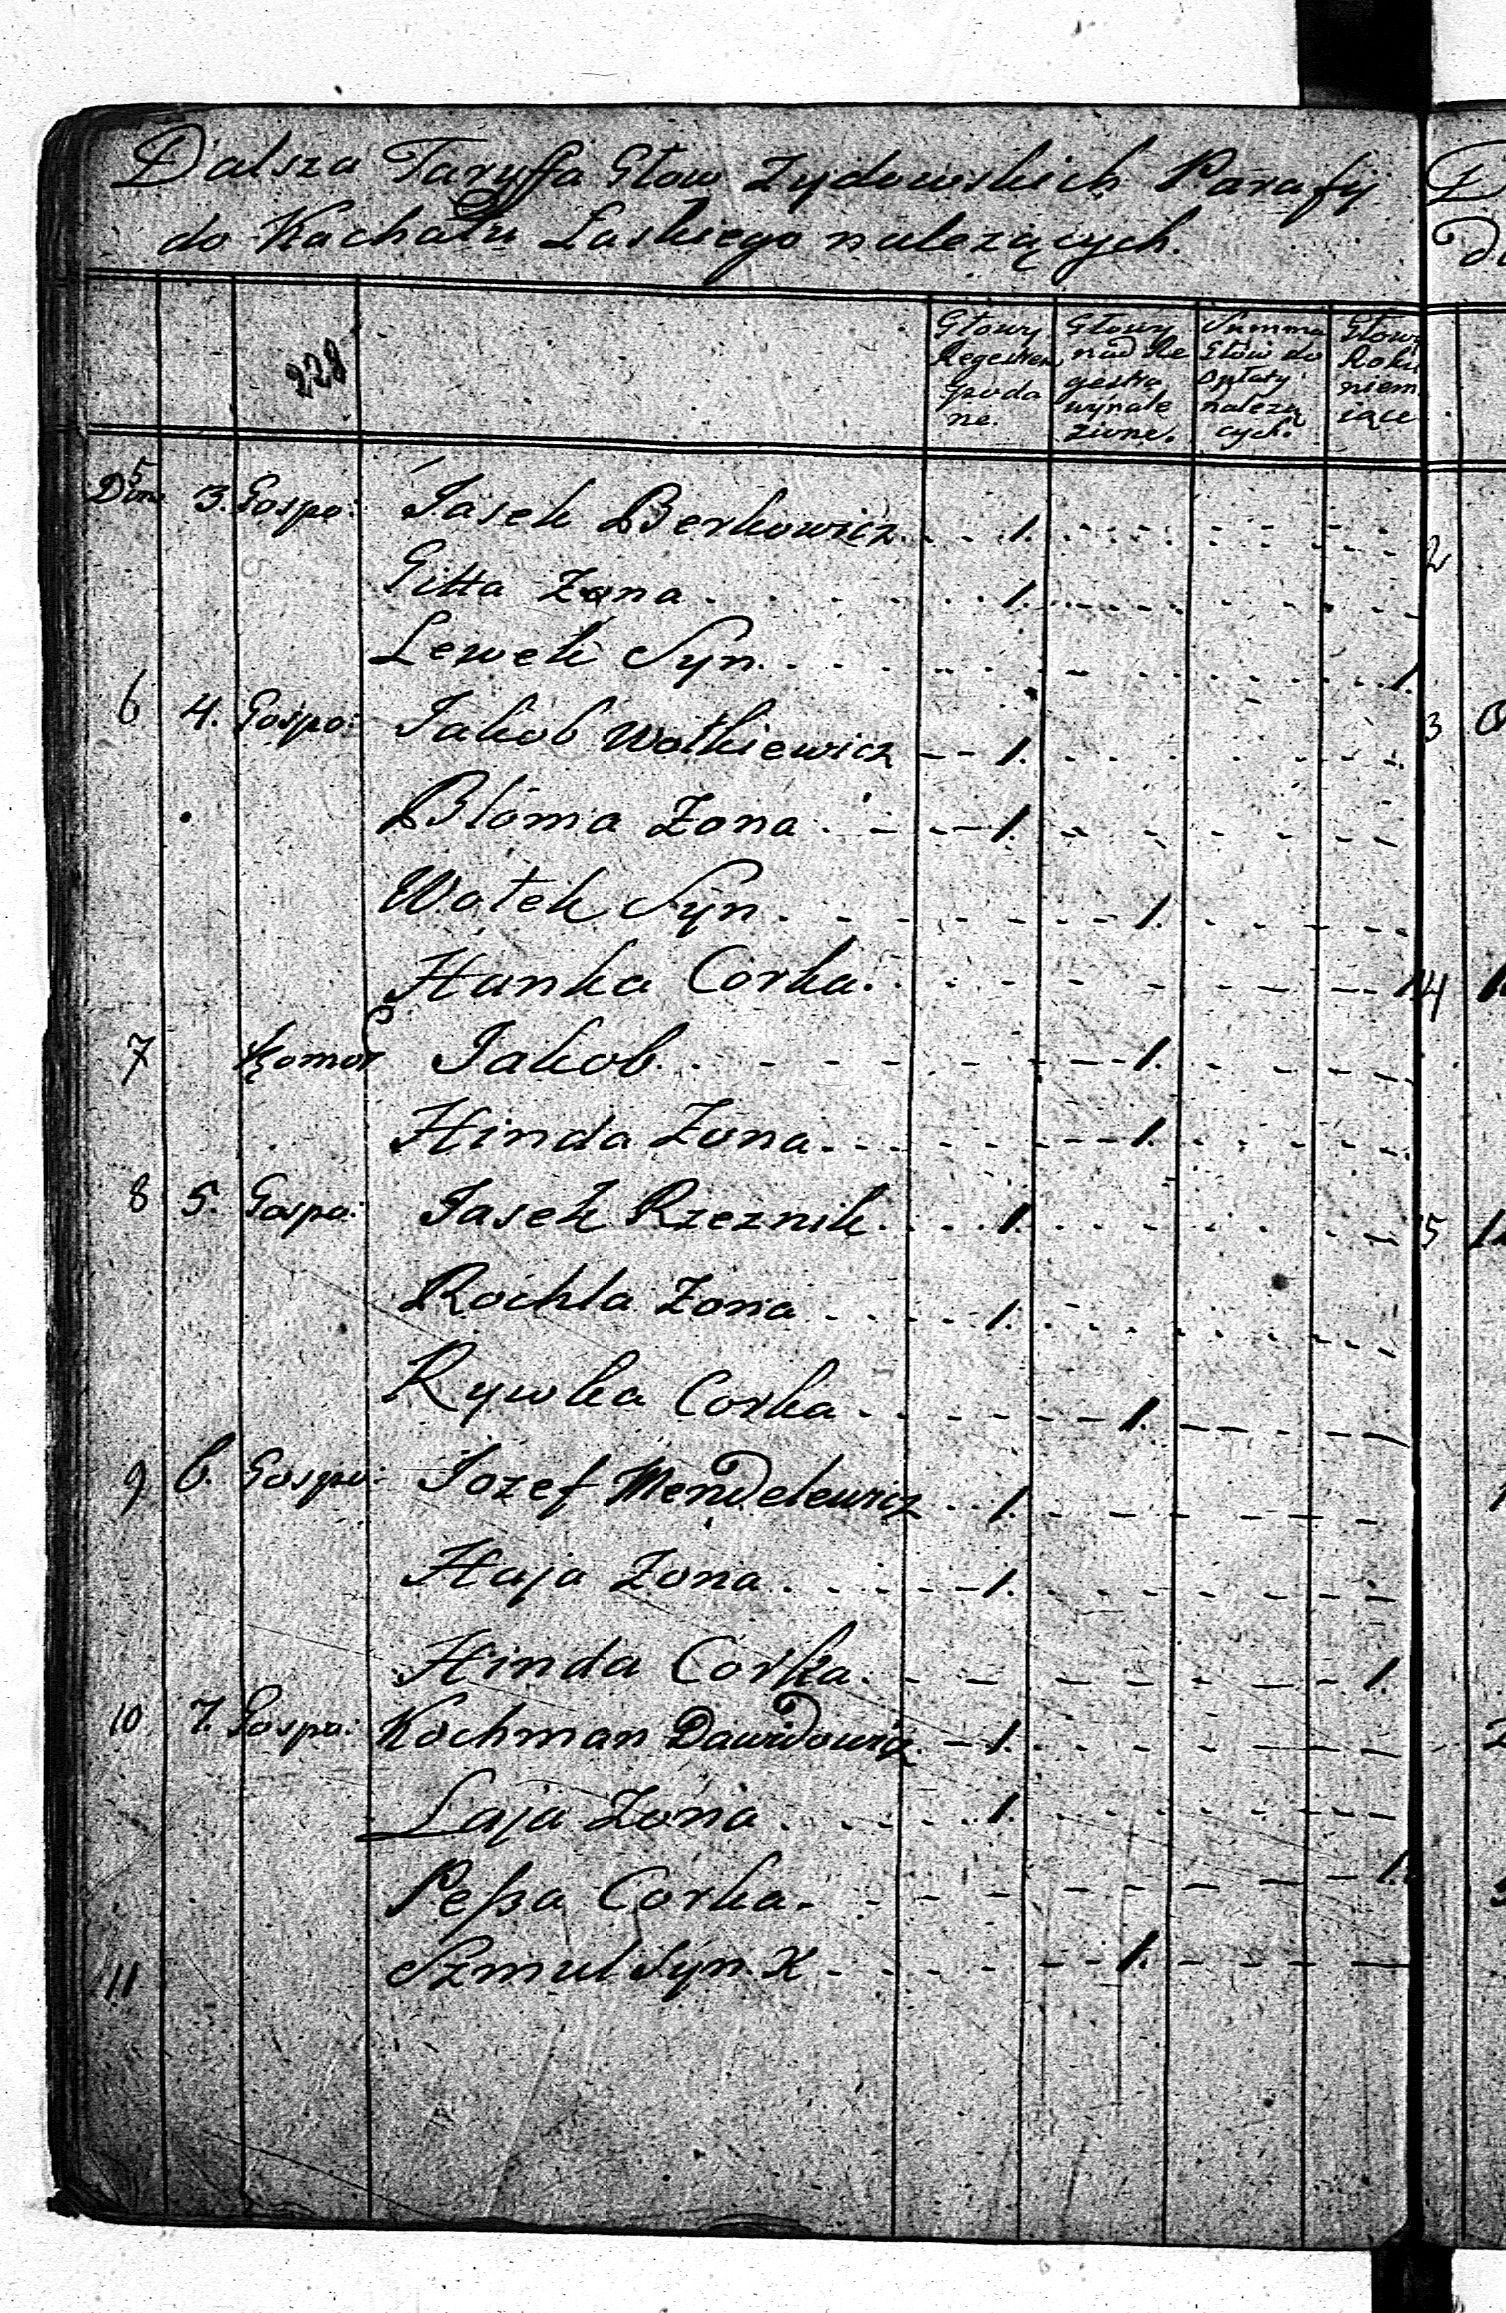 Dalsza Taryffa Głow Zydowskich Parafij
do Kachału Łaskiego nalezących.
228
Głowy Regestrem Podane.
Głowy nad Regestra wynalezione.
Summa Głów do Opłaty nalezących.
Głowy Roku niemiące
Dom 5 3. Gospo: Jasek Berkowicz . . . 1.
Gitta Zona . . . 1.
Lewek Syn . . . 1.
6 4. Gospo: Jakob Wolkiewicz - - 1.
Bloma Zona . . . 1.
Wolek Syn . . . 1.
Hanka Corka . . . 1.
7 Komor Jakob . . . 1.
Hinda Zona . . . 1.
8 5. Gospo: Jasek Rzeznik . . . 1.
Rochla Zona . . . 1.
Rywka Corka . . . 1.
9 6. Gospo: Jozef Mendelewicz . . 1.
Haja Zona . . . 1.
Hinda Corka . . . 1.
10 7. Gospo: Kochman Dawidowicz . - 1.
Laja Zona . . . 1.
Peßa Corka . . . 1.
11 Szmul Syn X . . . 1.
2
3
4
5